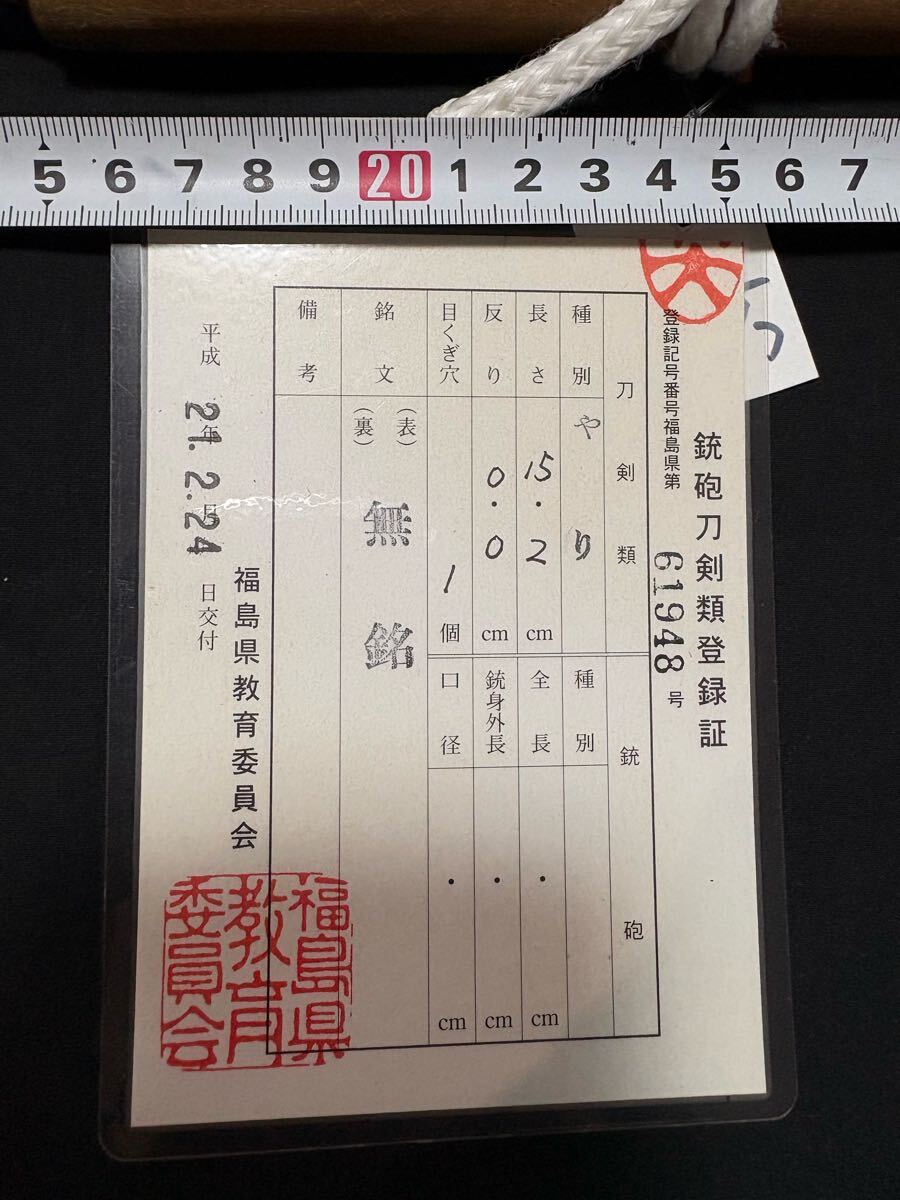 5 6 7 8 9 20 1 2 3 4 5 6 7
銃砲刀剣類登録証
登録記号番号福島県第 61948 号
刀剣類
種別 やり
長さ 15.2 cm
反り 0.0 cm
目くぎ穴 1 個
銘文 (表) (裏) 無銘
備考
銃砲
種別
全長 . cm
銃身外長 . cm
口径 . cm
平成 21年 2.月24 日交付
福島県教育委員会
福島県
教育
委員会